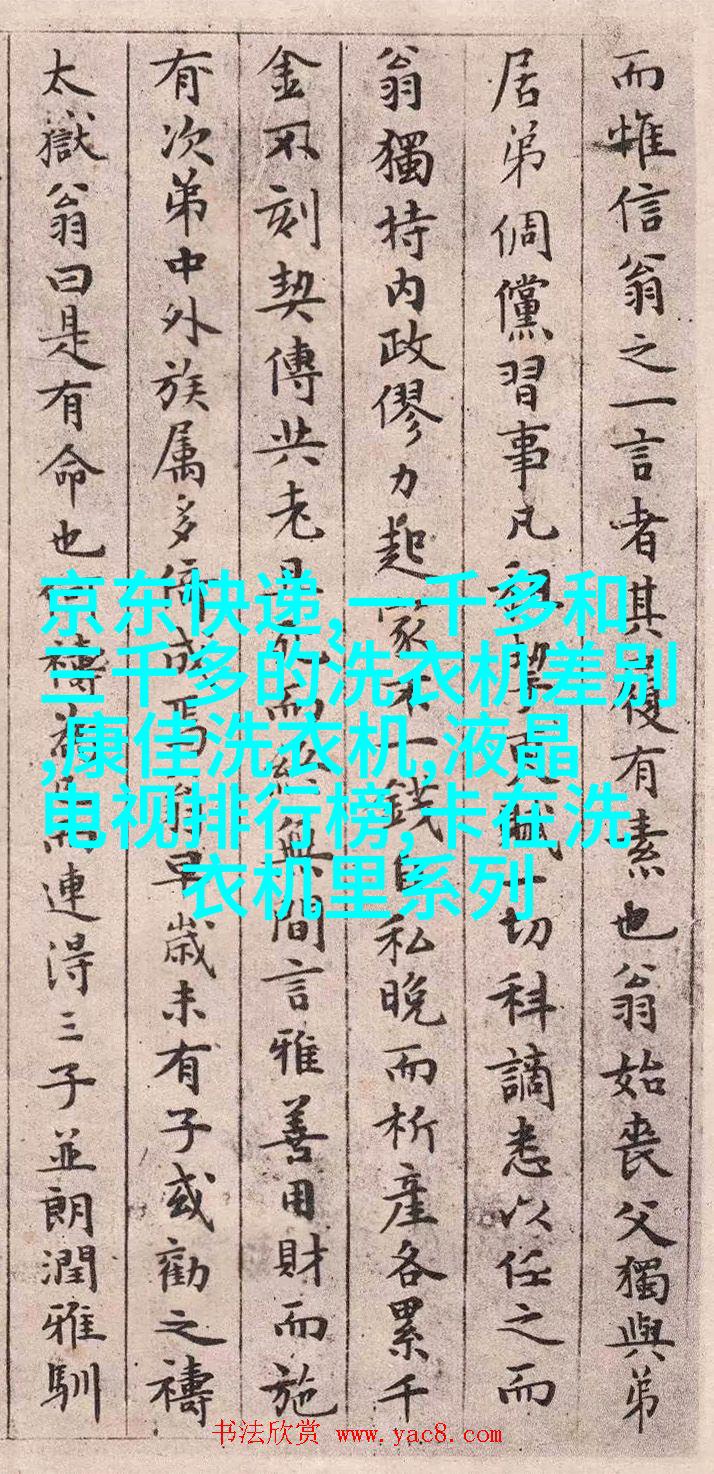 而惟信翁之一言者其履有素也翁始喪父獨與弟
居弟倜儻習事凡租挈更賦一切科謫悉以任之而
翁獨持内政僇力起家不一錢自私晚而析產各累千
金不刻契傳共老是死而終無間言雅善用財而施
有次第中外族属多倚成焉翁早歲未有子或勸之禱
太嶽翁曰是有命也何禱為而連得三子並朗潤雅馴
京东快递,一千多和
三千多的洗衣机差别
,康佳洗衣机,液晶
电视排行榜,卡在洗
衣机里系列
书法欣赏 www.yac8.com